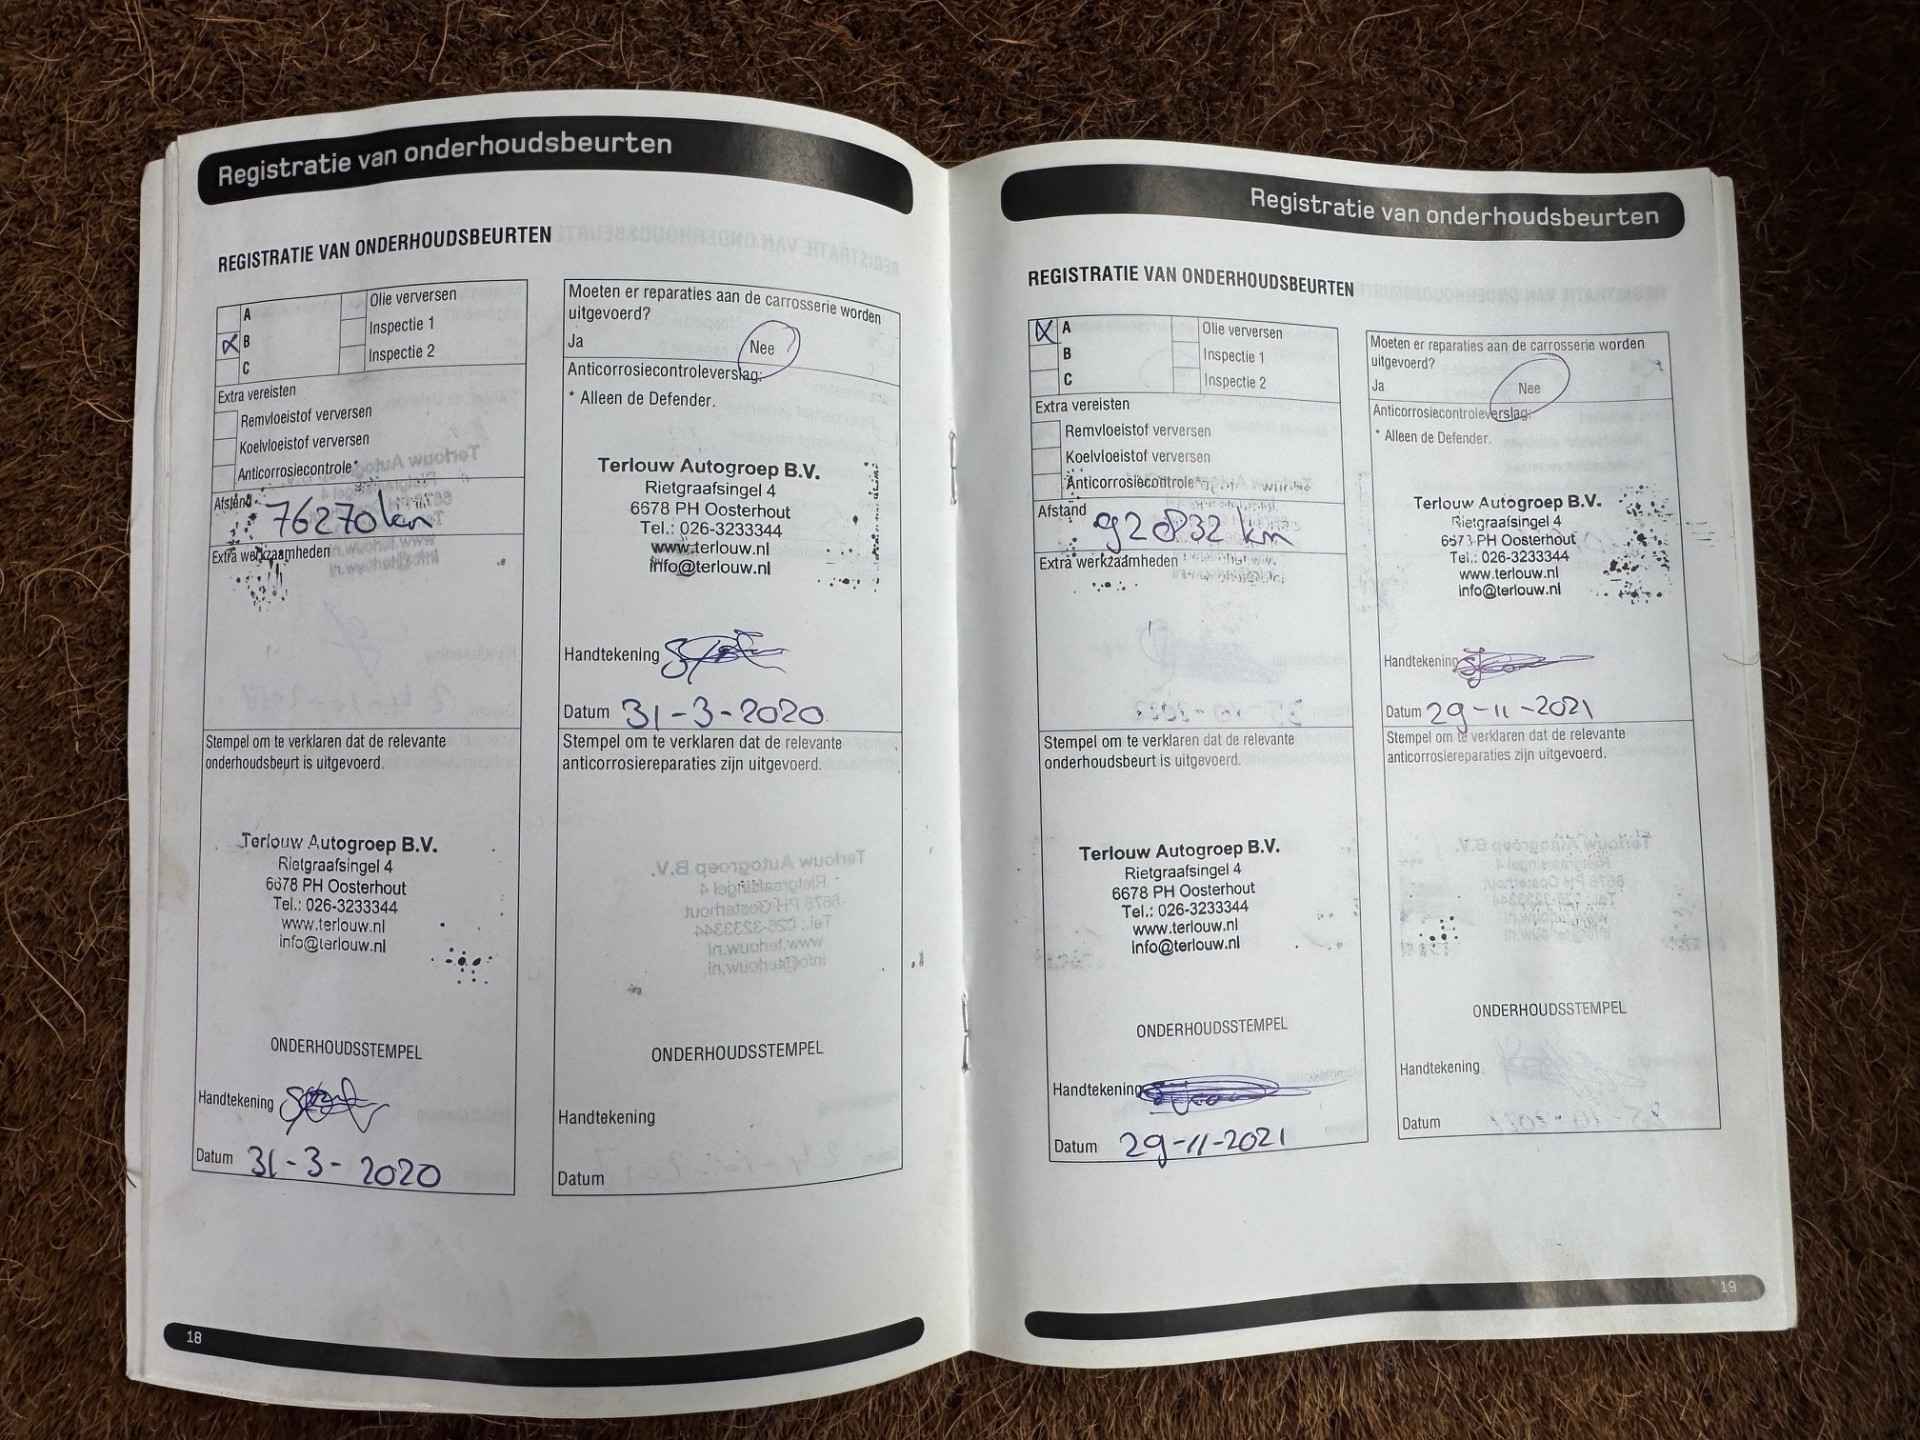 Registratie van onderhoudsbeurten
REGISTRATIE VAN ONDERHOUDSBEURTEN
A
B
C
Olie verversen
Inspectie 1
Inspectie 2
Extra vereisten
Remvloeistof verversen
Koelvloeistof verversen
Anticorrosiecontrole*
Afstand
76270 km
Extra werkzaamheden
Stempel om te verklaren dat de relevante
onderhoudsbeurt is uitgevoerd.
Terlouw Autogroep B.V.
Rietgraafsingel 4
6678 PH Oosterhout
Tel.: 026-3233344
www.terlouw.nl
info@terlouw.nl
ONDERHOUDSSTEMPEL
Handtekening
Datum 31-3-2020
Moeten er reparaties aan de carrosserie worden
uitgevoerd?
Ja Nee
Anticorrosiecontroleverslag:
* Alleen de Defender.
Terlouw Autogroep B.V.
Rietgraafsingel 4
6678 PH Oosterhout
Tel.: 026-3233344
www.terlouw.nl
info@terlouw.nl
Handtekening
Datum 31-3-2020
Stempel om te verklaren dat de relevante
anticorrosiereparaties zijn uitgevoerd.
ONDERHOUDSSTEMPEL
Handtekening
Datum
18
Registratie van onderhoudsbeurten
REGISTRATIE VAN ONDERHOUDSBEURTEN
A
B
C
Olie verversen
Inspectie 1
Inspectie 2
Extra vereisten
Remvloeistof verversen
Koelvloeistof verversen
Anticorrosiecontrole*
Afstand
92832 km
Extra werkzaamheden
Stempel om te verklaren dat de relevante
onderhoudsbeurt is uitgevoerd.
Terlouw Autogroep B.V.
Rietgraafsingel 4
6678 PH Oosterhout
Tel.: 026-3233344
www.terlouw.nl
info@terlouw.nl
ONDERHOUDSSTEMPEL
Handtekening
Datum 29-11-2021
Moeten er reparaties aan de carrosserie worden
uitgevoerd?
Ja Nee
Anticorrosiecontroleverslag:
* Alleen de Defender.
Terlouw Autogroep B.V.
Rietgraafsingel 4
6678 PH Oosterhout
Tel.: 026-3233344
www.terlouw.nl
info@terlouw.nl
Handtekening
Datum 29-11-2021
Stempel om te verklaren dat de relevante
anticorrosiereparaties zijn uitgevoerd.
ONDERHOUDSSTEMPEL
Handtekening
Datum
19